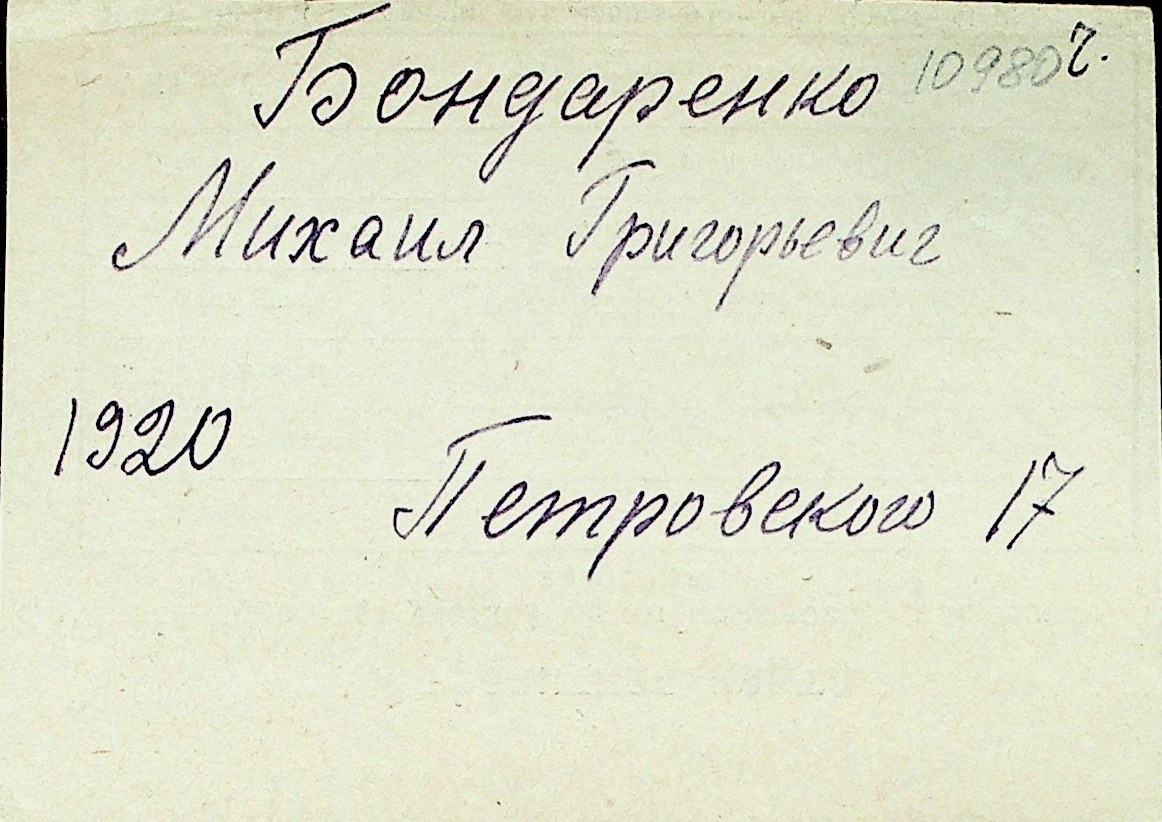 Бондаренко 10980 ч.
Михаил Григорьевич
1920
Петровского 17